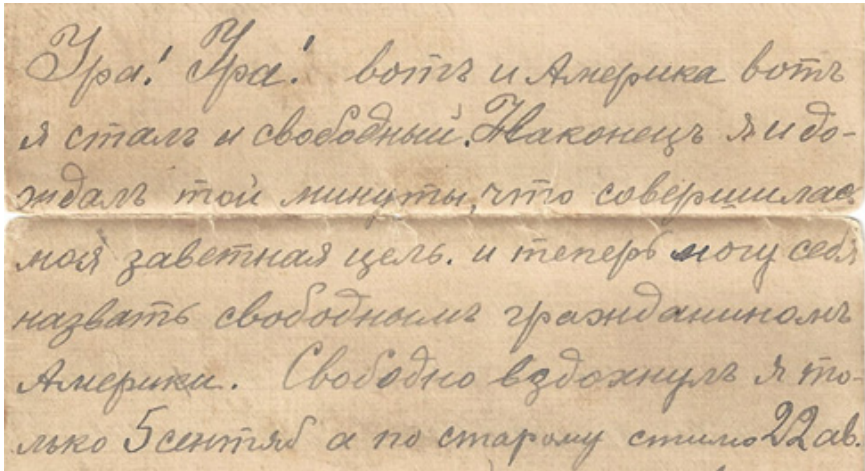 Ура! Ура! вотъ и Америка вотъ
я сталъ и свободный. Наконецъ я и до-
ждалъ той минуты, что совершилас
моя заветная цель. и теперь могу себя
назвать свободнымъ гражданиномъ
Америки. Свободно вздохнулъ я то-
лько 5 сентяб а по старому стилю 22 ав.